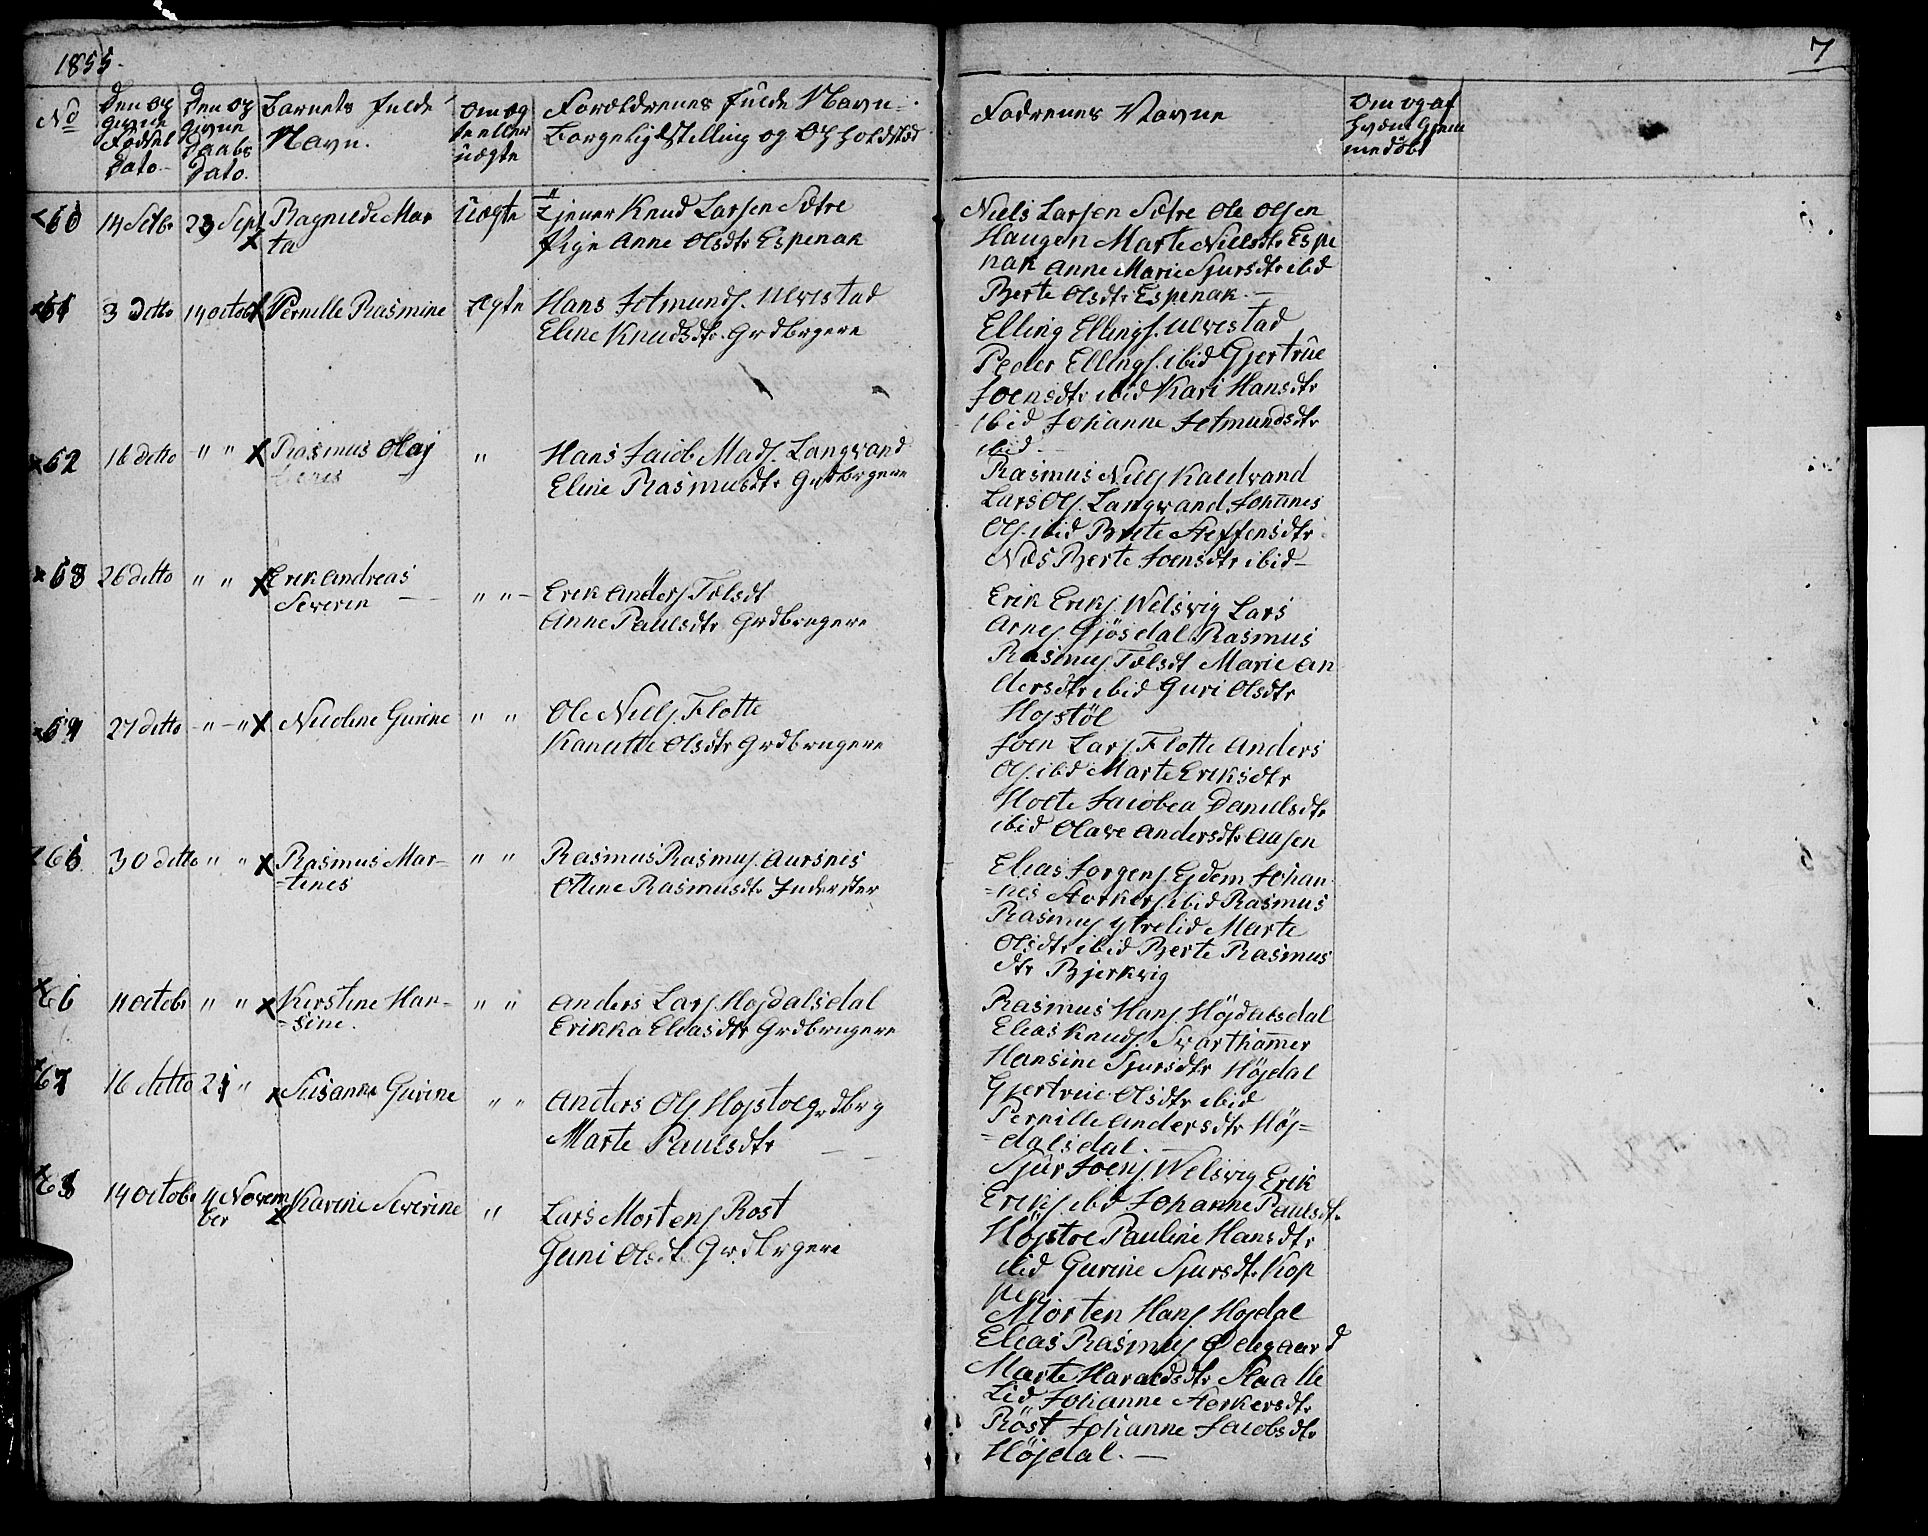 1855.
7
No
Den op
givne
Fødsel
Dato
Den op
givne
Daabs
Dato.
Barnets fulde
Navn.
Om æg
te eller
uægte
Forældrenes fulde Navn.
Borgerlig Stilling og Opholdsted
Fadrenes Navne
Om og af
hvem hjem
medøbt
60 14 Setbr 23 Sept Ragnilde Mar uægte Tjener Knud Larsen Sætre
ta Pige Anne Olsdtr Espenak
Niels Larsen Sætre Ole Olsen
Haugen Marte Nielsdtr Espe
nak Anne Marie Sjursdtr ibid
Berte Olsdtr Espenak. —
61 3 ditto 14 octob Pernille Rasmine ægte Hans Jetmunds. Ulvestad
Eline Knudsdtr. Grdbrgere
Elling Ellings. Ulvestad
Peder Ellings. ibid Gjertrue
Joensdtr ibid Kari Hansdtr
ibid Johanne Jetmundsdtr
ibid.
62 16 ditto " " Rasmus Olaj " Hans Jacob Mads. Langvand
Eline Rasmusdtr Grdbrgere
Rasmus Nills Kaldvand
Lars Ols. Langvand Johanes
Ols. ibid Brite Steffensdtr
Næs Berte Joensdtr ibid —
63 26 ditto " " Erik Andreas " " — Erik Anders Tolsdt
Severin — Anne Paulsdtr Grdbrugere
Erik Eriks Welsvig Lars
Arnes Gjösdal Rasmus
Rasmus Tolsdt Marie An
dersdtr ibid Guri Olsdtr
Hojstöl
64 27 ditto " — " Nicoline Gurine " " Ole Nills. Flotte
Kanutte Olsdtr Grdbrugere
Joen Lars Flotte Anders
Ols. ibd Marte Eriksdtr
Holte Jacobea Danielsdtr
ibid Olave Andersdtr Aasen
65 30 ditto " " Rasmus Mar- " " Rasmus Rasmus. Aursnes
-tines Oline Rasmusdtr Inderster
Elias Jorgens Ejdem Johan
=nes Storkers. ibid Rasmus
Rasmus ytrelid Marte
Olsdtr ibid Berte Rasmus
dtr Bjerkvig
66 11 octobr " " Kirstine Han- " " Anders Lars Hojdalsdal
-sine. Erikka Eliasdtr Grdbrugere
Rasmus Hans Höjdalsdal
Elias Knuds. Svarthammer
Hansine Sjursdtr Höjdal
Gjertrue Olsdtr ibid
Pernille Andersdtr Höj=
=dalsdal. —
67 16 ditto 21 " Susanne Gurine " " Anders Ols Hojstoe grdbrg
Marte Paulsdtr — —
Sjur Joens Welsvig Erik
Eriks ibid Johanne Paulsdtr
Höjstoe Pauline Hansdtr
ibid Gurine Sjursdtr Kop
pen
68 14 octobr 4 Novem Karine Severine " Lars Mortens Rost
ber Guni Olsdt Grdbrgere
Morten Hans Hojdal
Elias Rasmus Ødegaard
Marte Haraldsdtr Staalle
Lid Johanne Storkersdtr
Röst Johanne Jacobsdtr
Höjdal. —